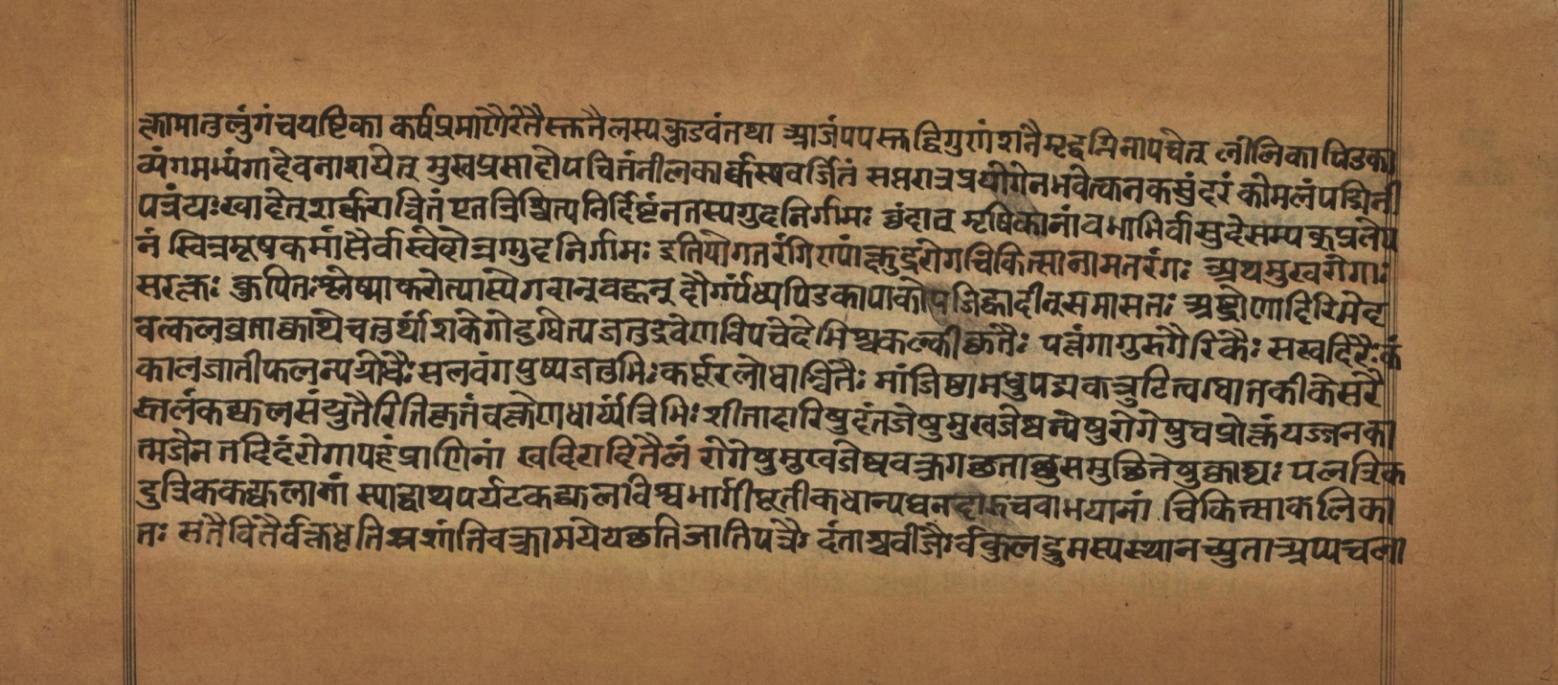 त्कामातुलुंगंचयष्टिका कर्षप्रमाणैरेतैस्तुतैलस्यकुडवंतथा आजंपयस्तद्विगुणंशनैमृद्वग्निनापचेत् लीनिकापिडका
व्यंगमभ्यंगादेवनाशयेत् मुखप्रसादोपचितंनीलकार्कस्यवर्जितं सप्तरात्रप्रयोगेनभवेत्कनकसुंदरं कोमलंपद्मिनी
पत्रंयःखादेत्शर्कराचितं एतन्निश्चित्यनिर्दिष्टंनतस्यगुदनिर्गमः वृंदात् मूषिकानांवधाभिर्वासुदेसम्यक्प्रलेप
नं स्विन्नमूषकमांसैर्वास्वेदयेन्नगुदनिर्गमः इतियोगतरंगिण्यांक्षुद्ररोगचिकित्सानामतरंगः अथमुखरोगाः
सरक्तः कुपितःश्लेष्माकरोत्यास्येगदान्बहून् दौर्गंध्यपिडकापाकौ जिह्वादीन्समासतः दारिमेद
वल्कलव्रताक्वाथेचतुर्थांशकेगोदुग्धेत्यजतुद्रवेणविपचेदेभिश्चकल्कीकृतैः पत्तंगागुरुगैरिकैः सखदिरैःकं
कोलजातीफलन्यग्रोधैःसलवंगपुष्पजतुभिःकर्पूरलोध्रान्वितैः मांजिष्ठामधुपद्मकत्रुटित्वग्धातकीकेसरै
स्तार्लकट्फलसंयुतैरितिकृतंवक्त्रेणधार्य्यंत्रिभिः शीतादारिषुदंतजेषुमुखजेष्वन्येषुरोगेषुचप्रोक्तंयज्जनका
त्मजेनतदिदंरोगापहंप्राणिनां खदिरादितैलं रोगेषुमुखजेष्ववक्त्रगछतालुसमुछितेषुक्वाथः पलत्रिक
दुत्रिककट्फलानां स्याद्वाथपर्पटककट्फलविश्वभार्गीपूतीकधान्यघन वचवाभयानां चिकित्साकलिका
तः संतैर्वितैर्वक्त्रधृतिप्रशांतिंवक्त्रामयेयछतिजातिपत्रैः दंताश्चबीजैर्बकुलद्रुमस्यस्थानच्युताअप्यचला